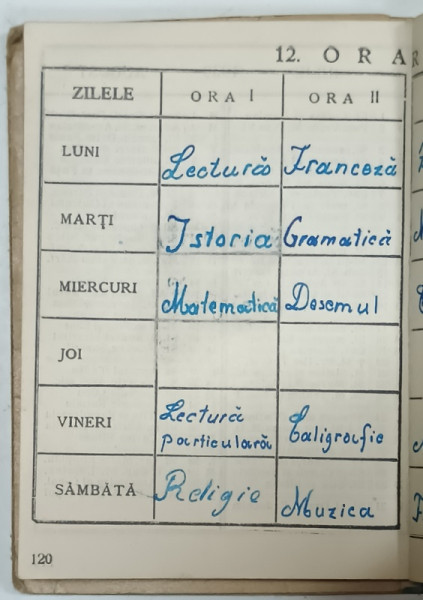 12. ORAR
ZILELE ORA I ORA II
LUNI Lectură Franceză
MARŢI Istoria Gramatică
MIERCURI Matematică Desemul
JOI
VINERI Lectură particulară Caligrafie
SÂMBĂTĂ Religie Muzica
120